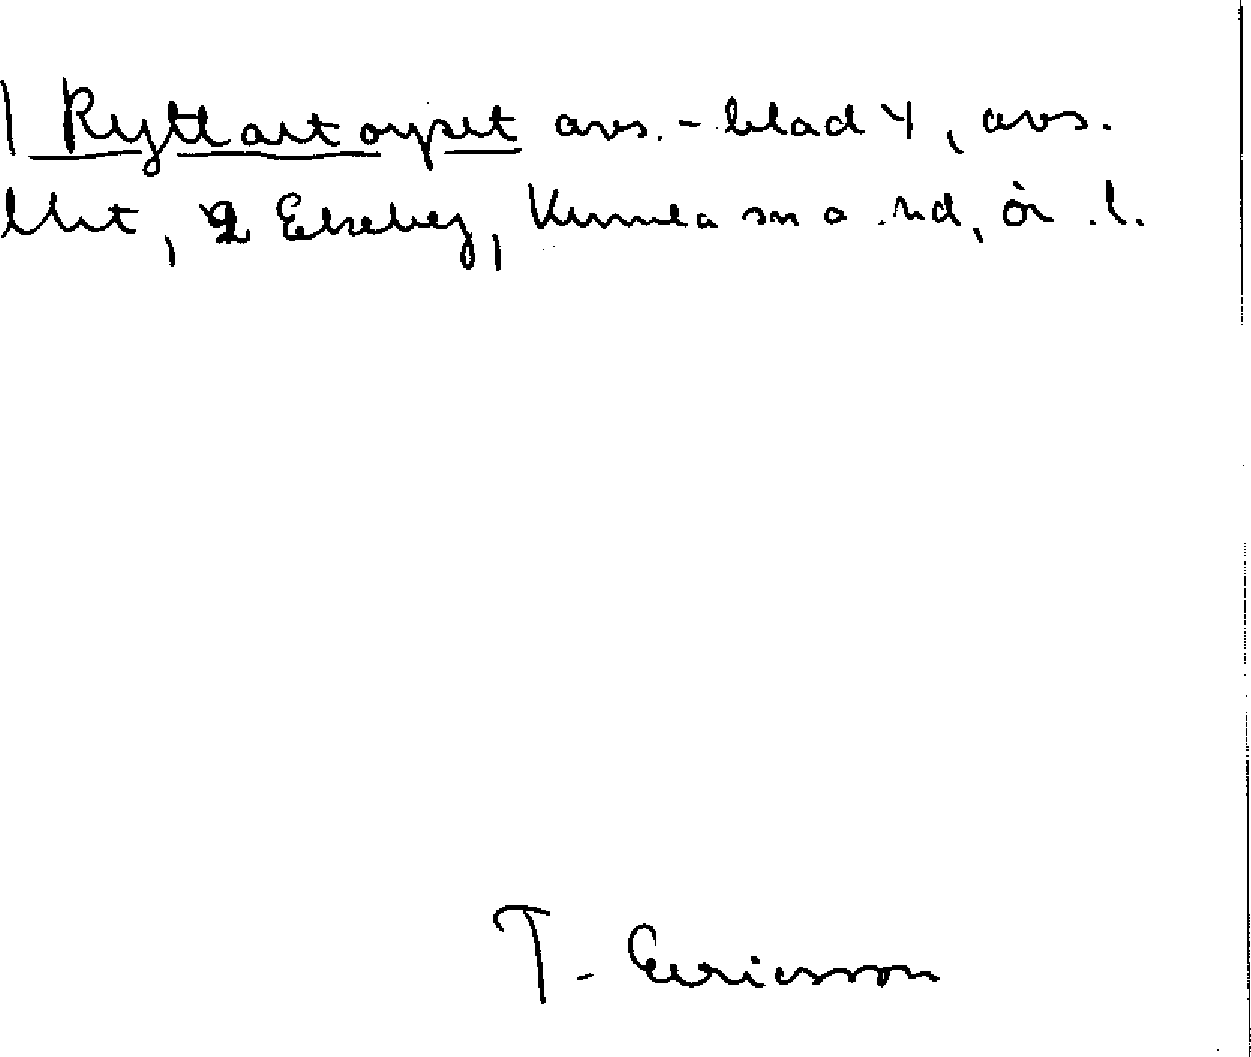 1 Ryttartorpet avs. - blad 4, avs.
lht, 2 Elseberg, Kumla sn o. hd, ör. l.
T. Ericsson